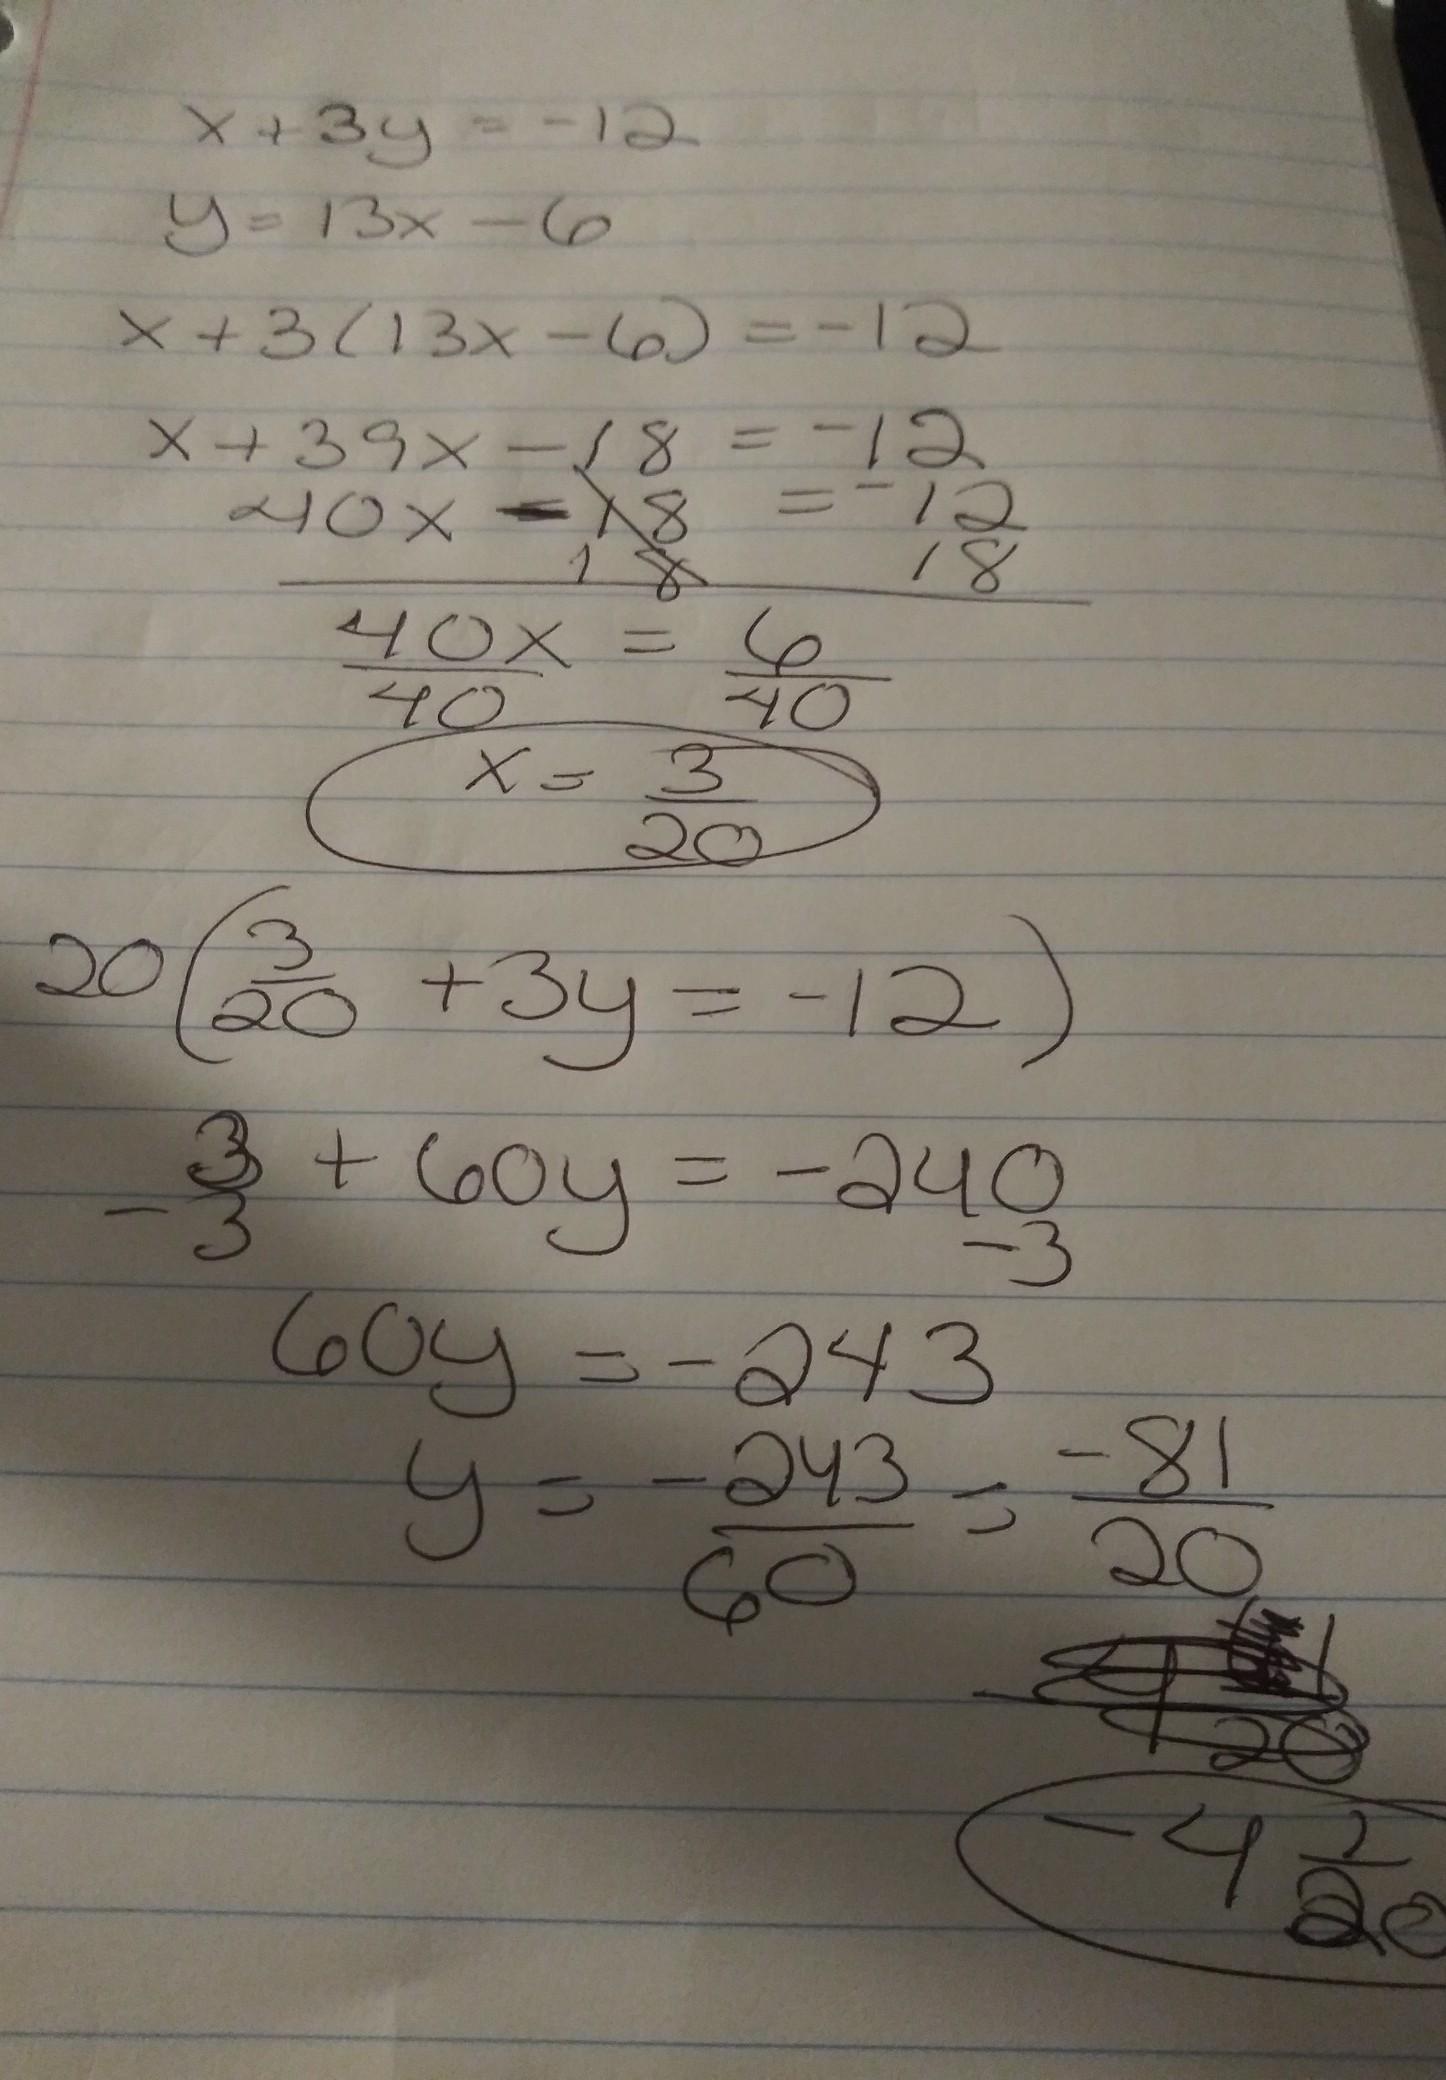 x + 3y = -12
y = 13x - 6
x + 3(13x - 6) = -12
x + 39x - 18 = -12
40x - 18 = -12
18 18
40x = 6
40 40
x = 3/20
20(3/20 + 3y = -12)
3 + 60y = -240
-3 -3
60y = -243
y = -243/60 = -81/20
-4 1/20